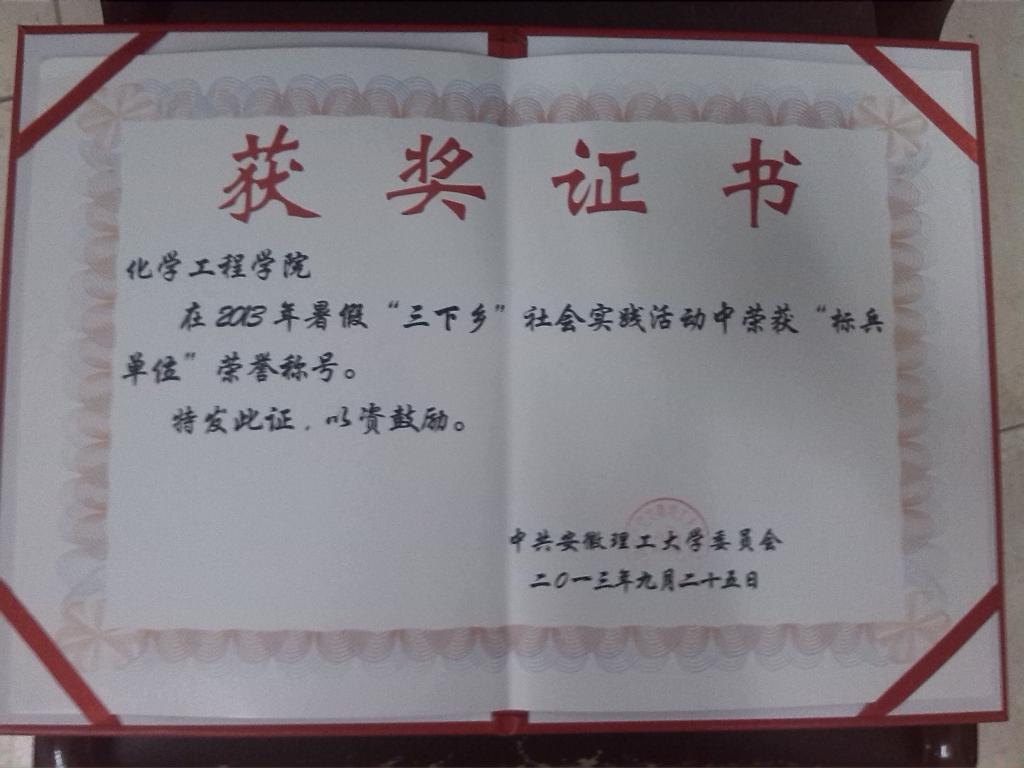 获奖证书
化学工程学院
在2013年暑假“三下乡”社会实践活动中荣获“标兵
单位”荣誉称号。
特发此证，以资鼓励。
中共安徽理工大学委员会
二〇一三年九月二十五日